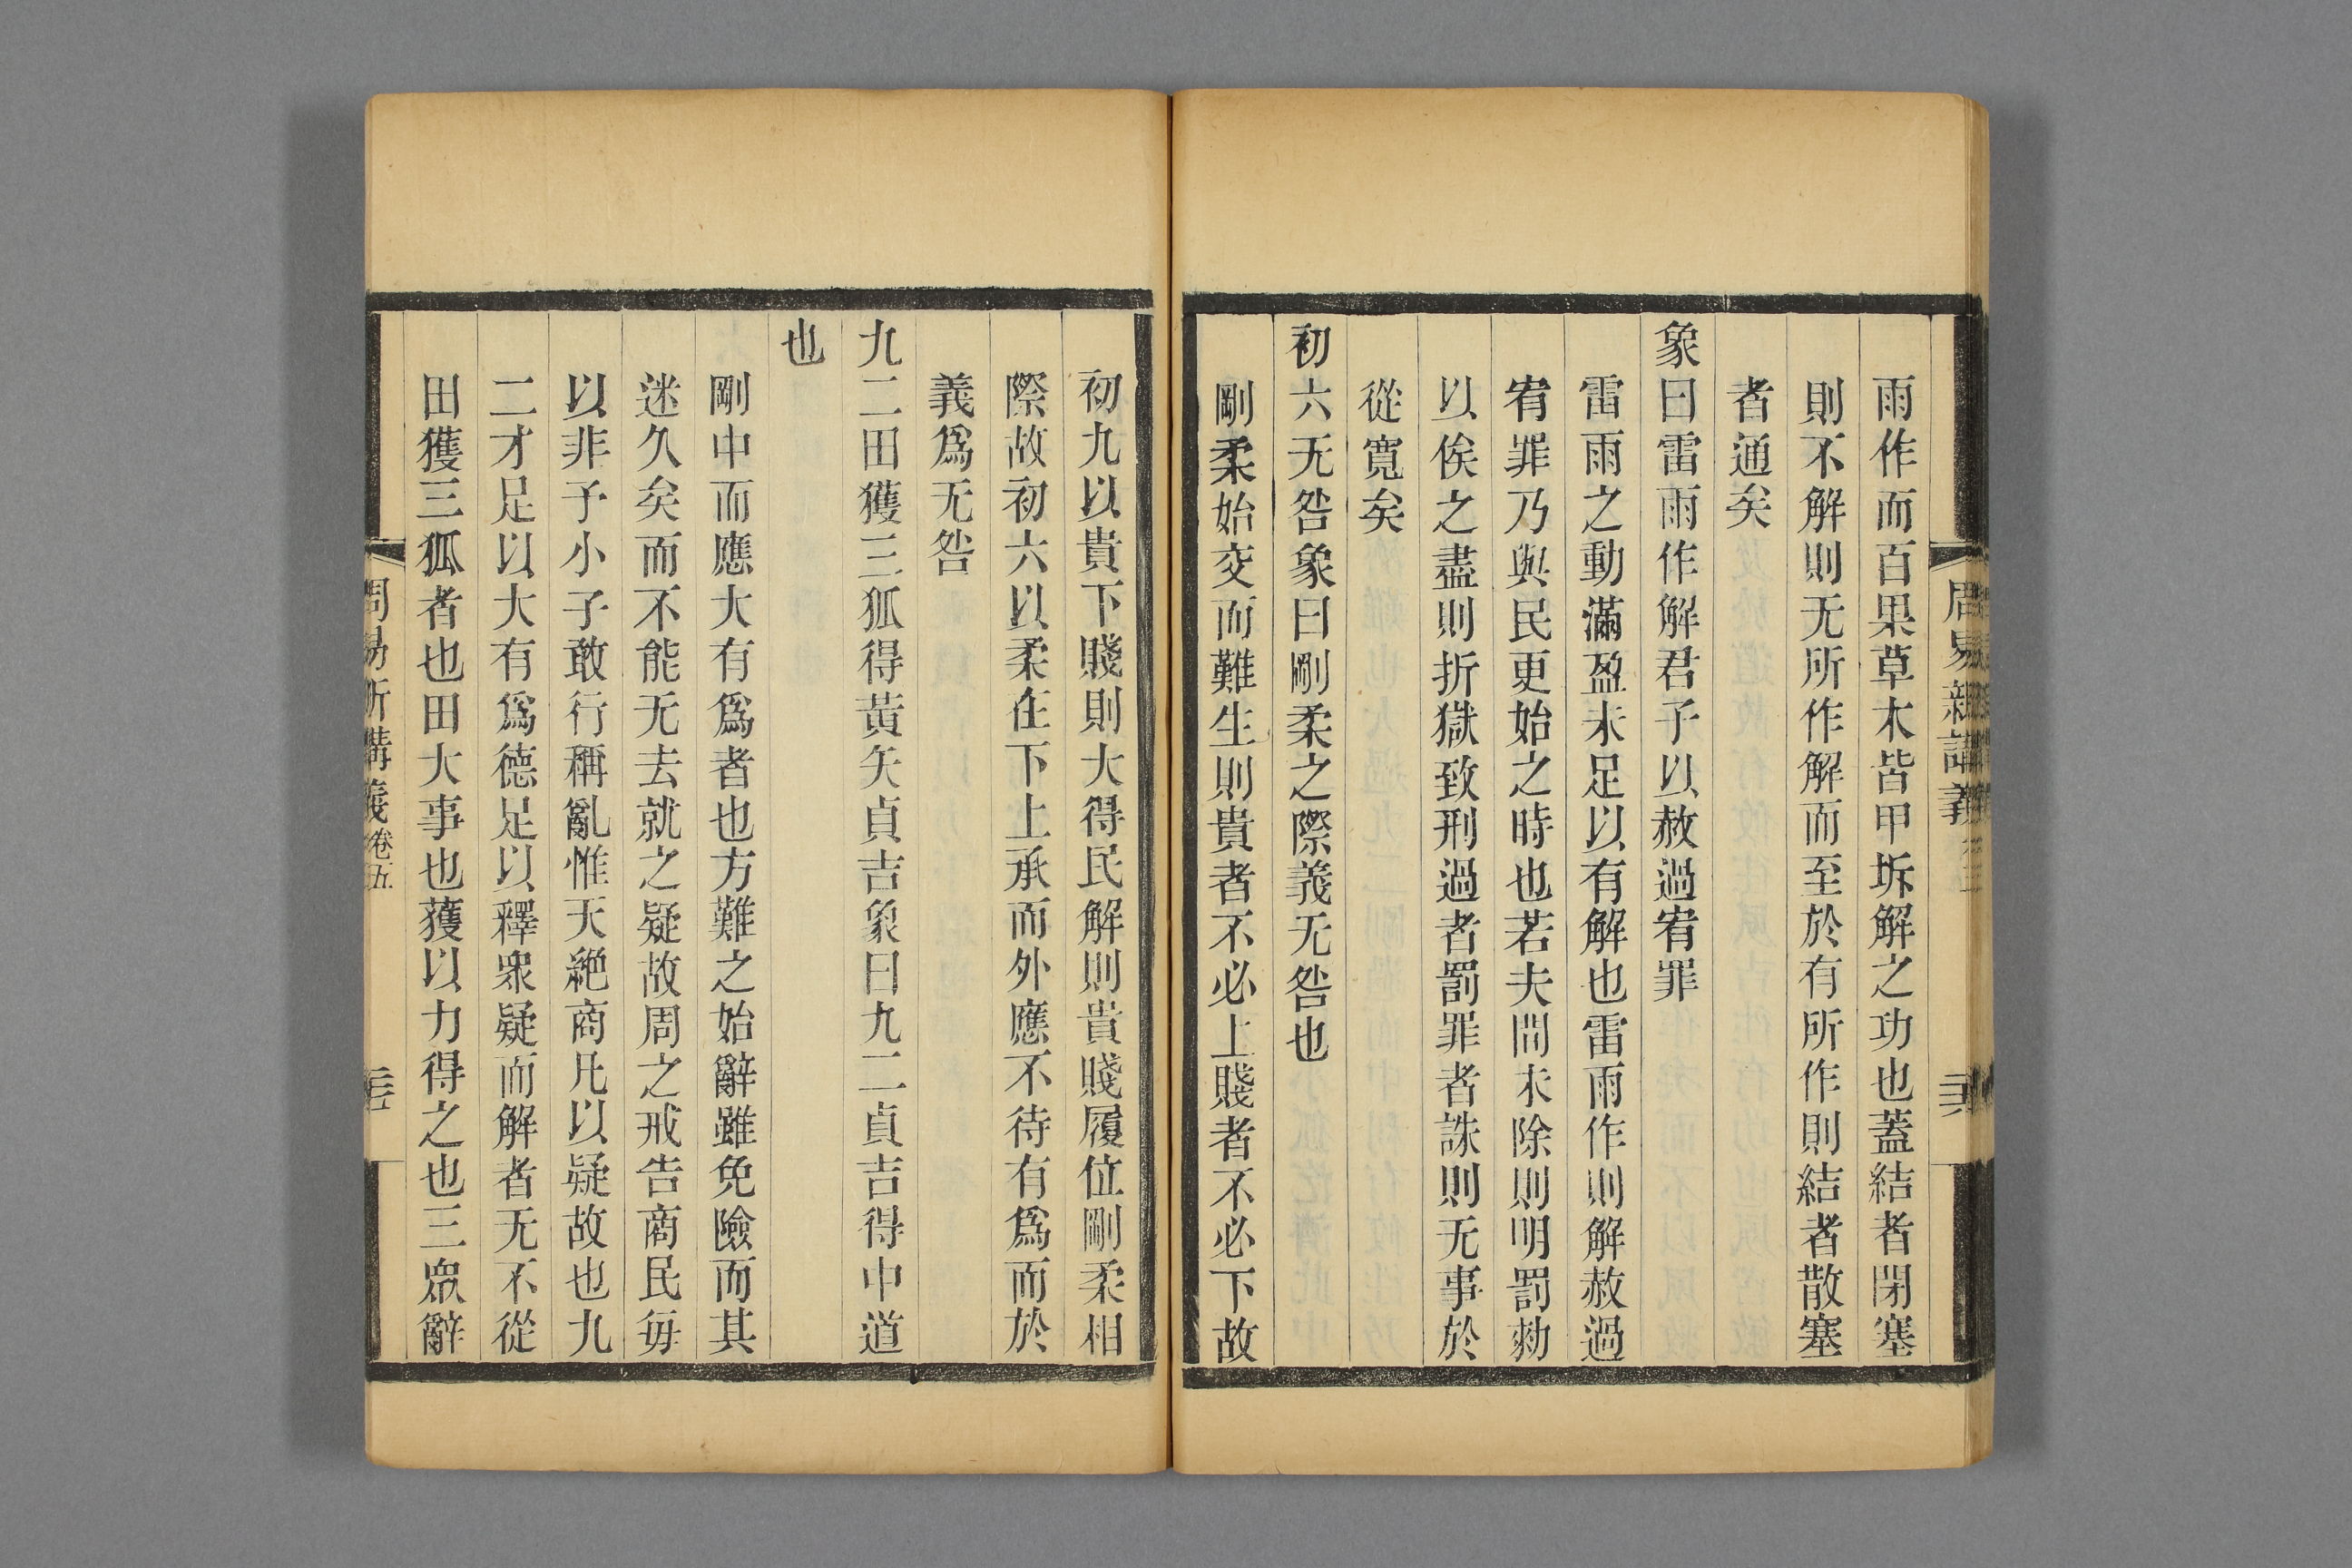 周易新講義
雨作而百果草木皆甲坼解之功也蓋結者閉塞
則不解則无所作解而至於有所作則結者散塞
者通矣
象曰雷雨作解君子以赦過宥罪
雷雨之動滿盈未足以有解也雷雨作則解赦過
宥罪乃與民更始之時也若夫間未除則明罰勑
以俟之盡則折獄致刑過者罰罪者誅則无事於
從寬矣
初六无咎象曰剛柔之際義无咎也
剛柔始交而難生則貴者不必上賤者不必下故
初九以貴下賤則大得民解則貴賤履位剛柔相
際故初六以柔在下上承而外應不待有爲而於
義爲无咎
九二田獲三狐得黃矢貞吉象曰九二貞吉得中道
也
剛中而應大有爲者也方難之始辭雖免險而其
迷久矣而不能无去就之疑故周之戒告商民毎
以非予小子敢行稱亂惟天絕商凡以疑故也九
二才足以大有爲德足以釋衆疑而解者无不從
田獲三狐者也田大事也獲以力得之也三眾辭
周易新講義 卷五